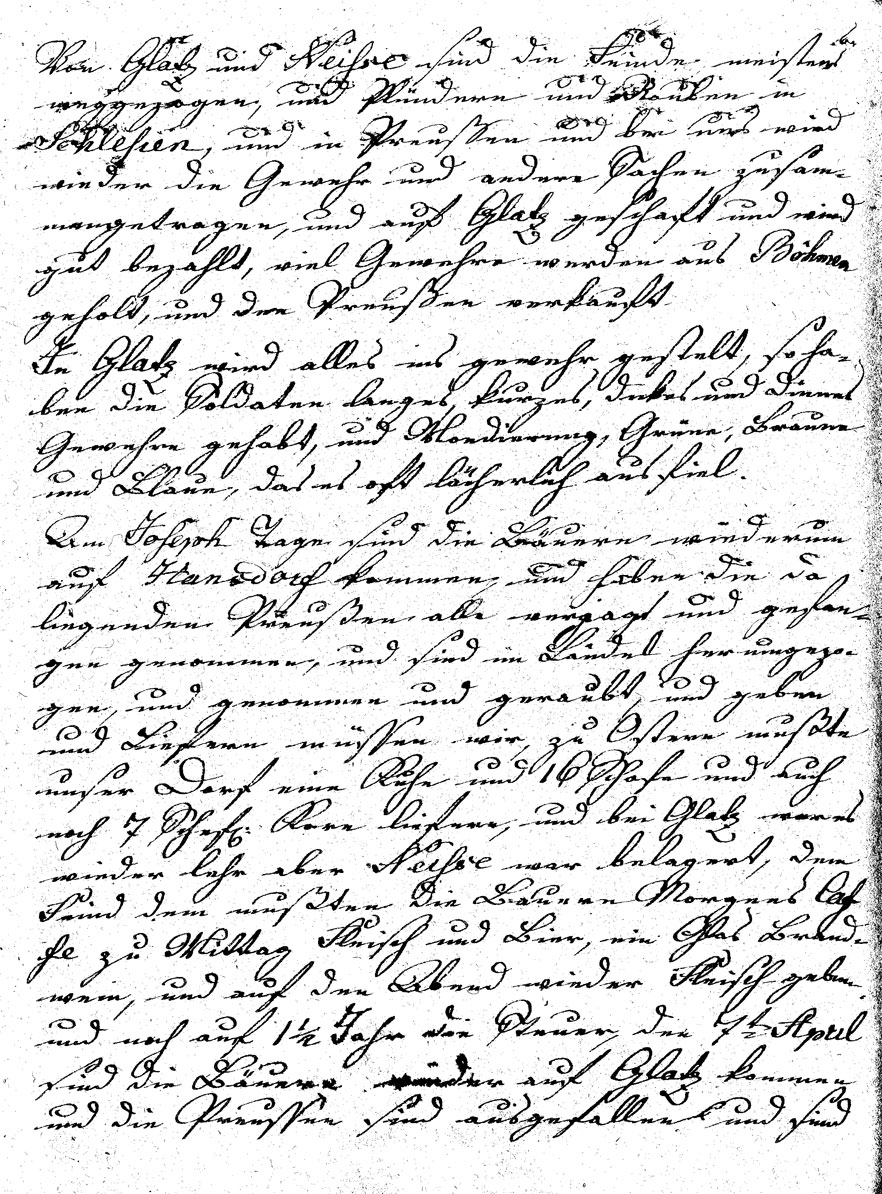 Von Glatz und Neisse sind die Feinde meistens
weggezogen, und Plündern und Rauben in
Schlesien, und in Preussen und bei uns wird
wieder die Gewehr und andere Sachen zusam-
mengetragen, und auf Glatz geschaft und wird
gut bezahlt, viel Gewehre werden aus Böhmen
geholt, und den Preußen verkauft
In Glatz wird alles ins gewehr gestelt, so ha-
ben die Soldaten langes, kurzes, dickes und dinnes
Gewehre gehabt, und Mondierung, Grüne, Braune
und Blaue, das es oft lächerlich ausfiel.
Am Joseph Tage sind die Bäuern wiederum
auf Hansdorf kommen, und haben die da
liegenden Preußen alle verjagt und gefan-
gen genommen, und sind im Landel herumgezo-
gen, und genommen und geraubt, und geben
und Liefern müssen wir, zu Ostern mußte
unser Dorf eine Kuhe und 16 Schafe und auch
noch 7 Schefl: Korn liefern, und bei Glatz war es
wieder lehr aber Neisse war belagert, dem
Feind dem mußten die Bauern Morgens Caf-
fe zu Mittag Fleisch und Bier, ein Glas Brand-
wein, und auf den Abend wieder Fleisch geben,
und noch auf 1½ Jahr die Steuer, den 7t April
sind die Bäuern wieder auf Glatz kommen
und die Preussen sind ausgefallen und sind